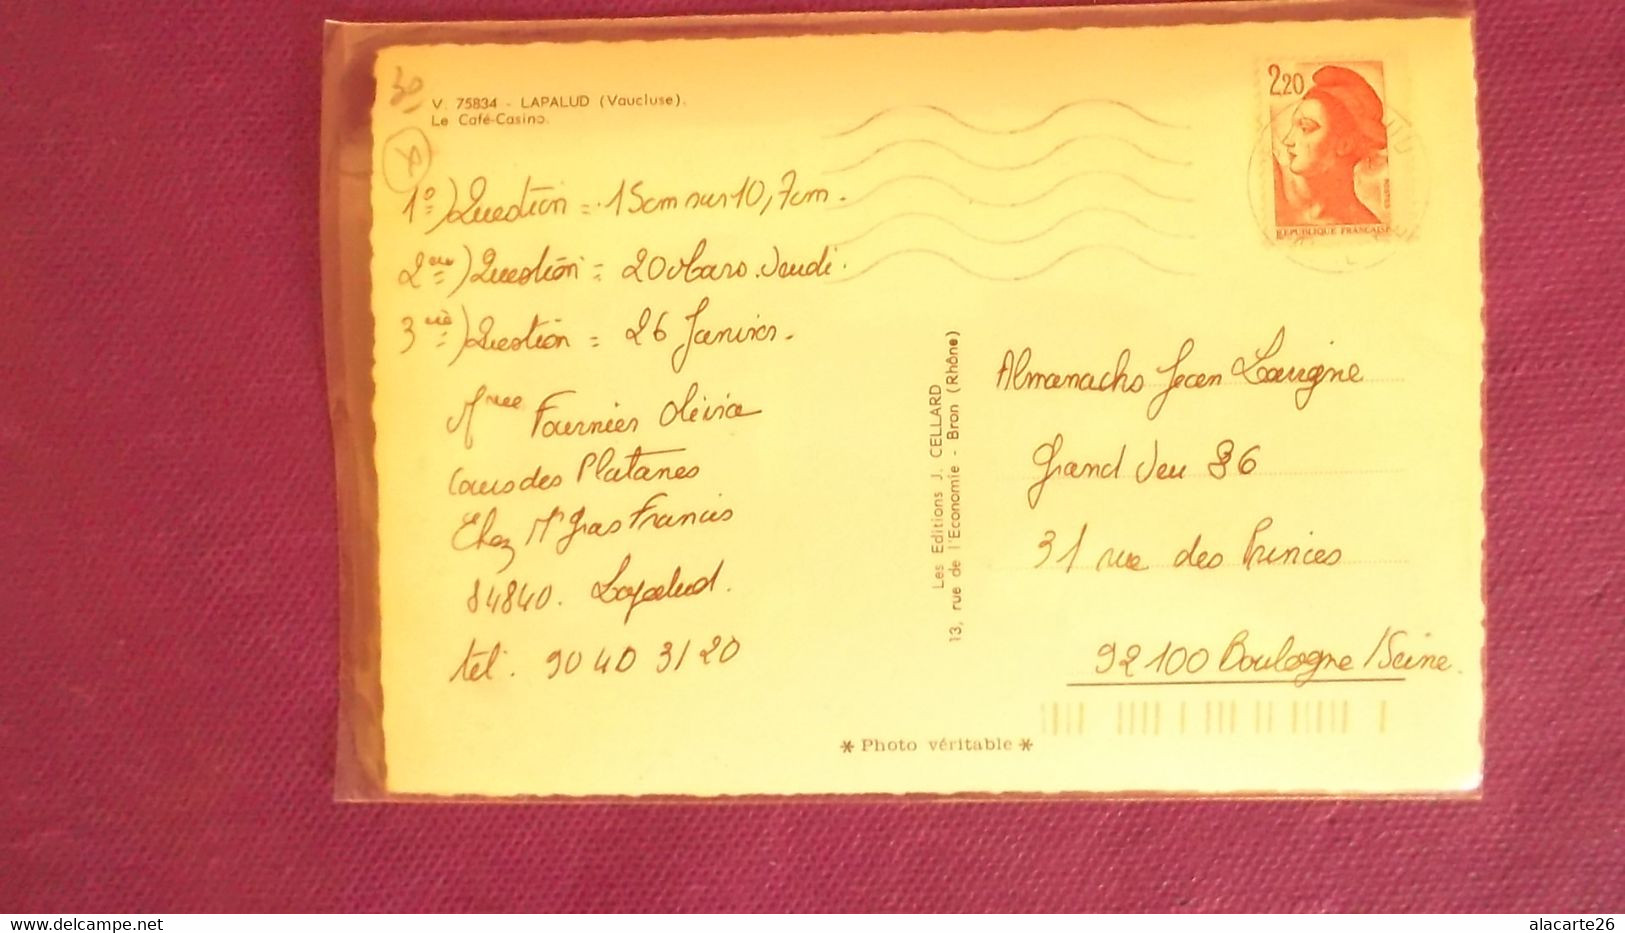 30
V. 75834 - LAPALUD (Vaucluse).
Le Café-Casino.
1°) Question = 15cm sur 10,7cm.
2ème) Question = 20 Mars. Jeudi.
3ième) Question = 26 Janvier.
Fournier Olivia
Cours des Platanes
Chez Mr Gras Francis
84840. Lapalud.
tél. 90 40 31 20
Les Editions J. CELLARD
13, rue de l'Economie - Bron (Rhône)
2,20
REPUBLIQUE FRANCAISE
Almanachs Jean Lavigne
Grand Jeu 86
31 rue des Princes
92100 Boulogne/Seine.
* Photo véritable *
www.delcampe.net
alacarte26